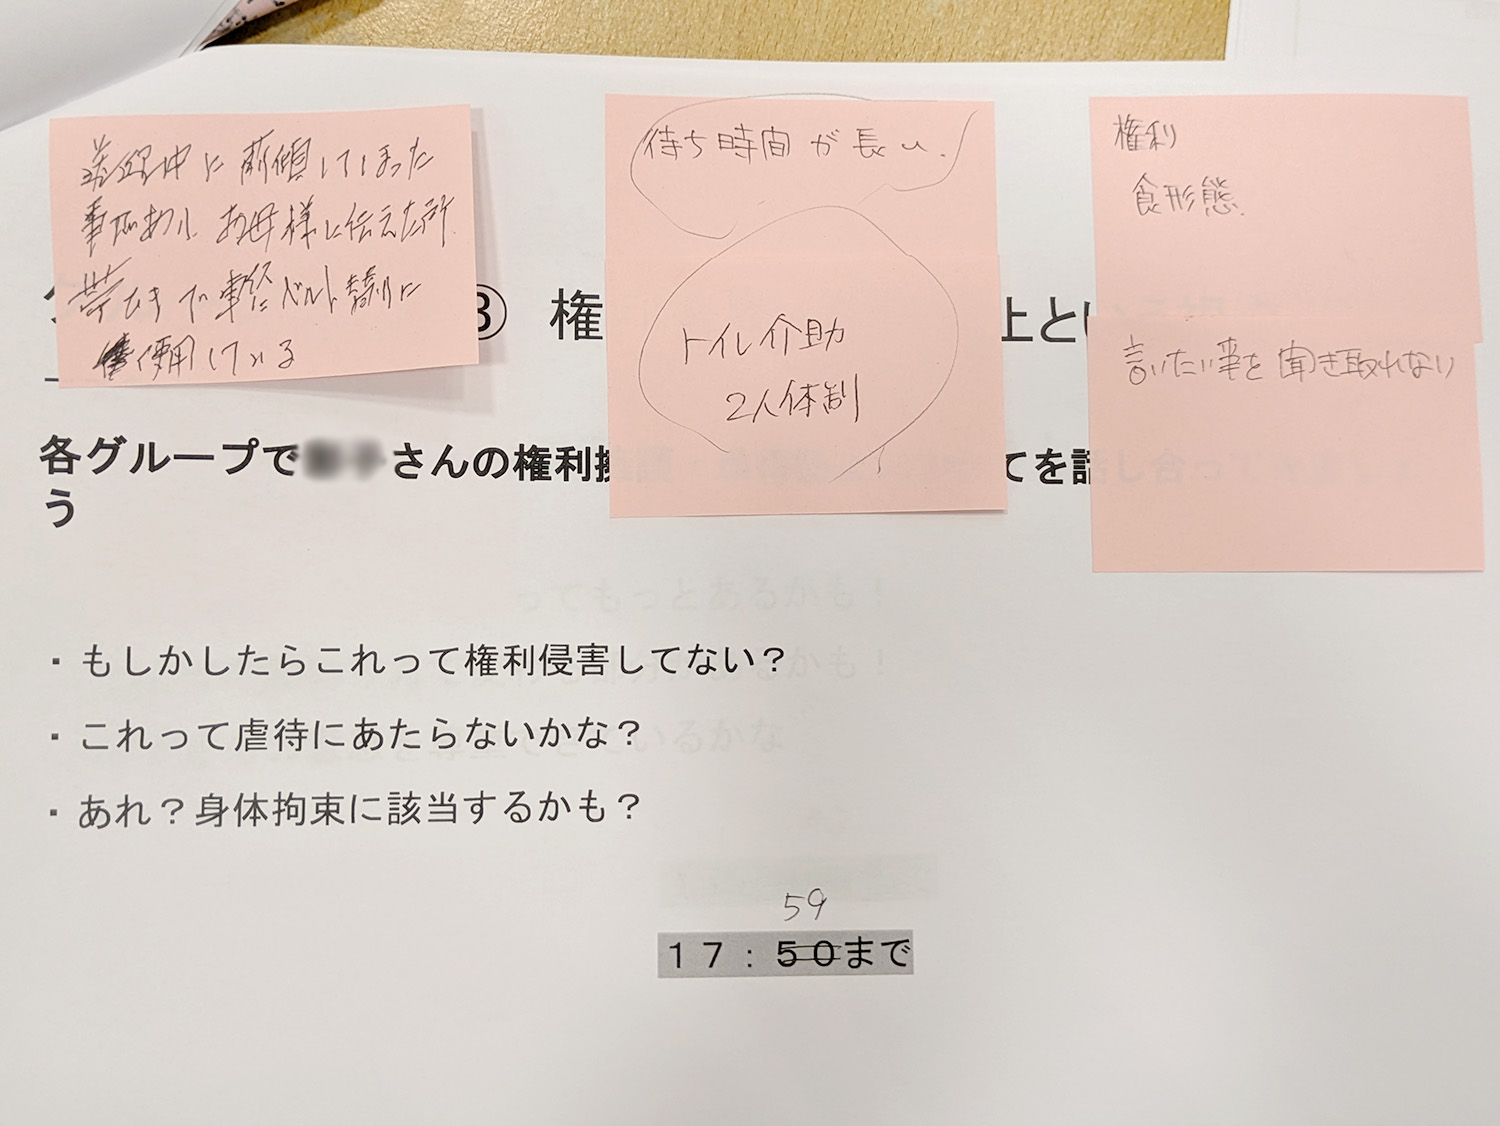 送迎中に前傾してしまった
事例あり、お母様に伝えた所
帯ひもで軽くベルト替りに
使用している
待ち時間が長い.
トイレ介助
2人体制
権利
食形態.
言いたい事を聞き取れない
③ 権 上とい
各グループで さんの権利擁 てを話し合
う
・もしかしたらこれって権利侵害してない？
・これって虐待にあたらないかな？
・あれ？身体拘束に該当するかも？
59
１７：５０まで